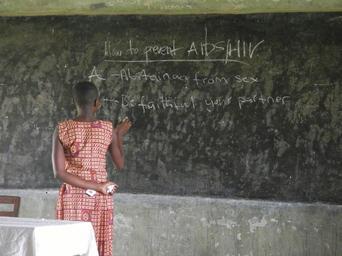 How to prevent AIDS/HIV
A - Abstinancy from sex
- Be faithful your partner